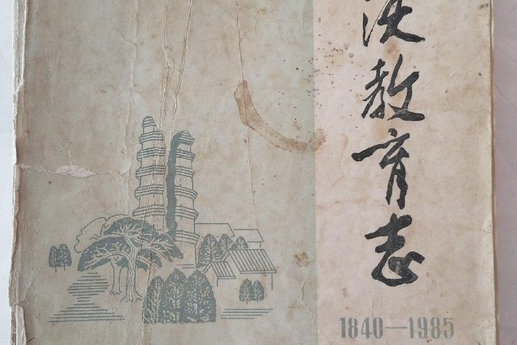 教育志
1840—1985